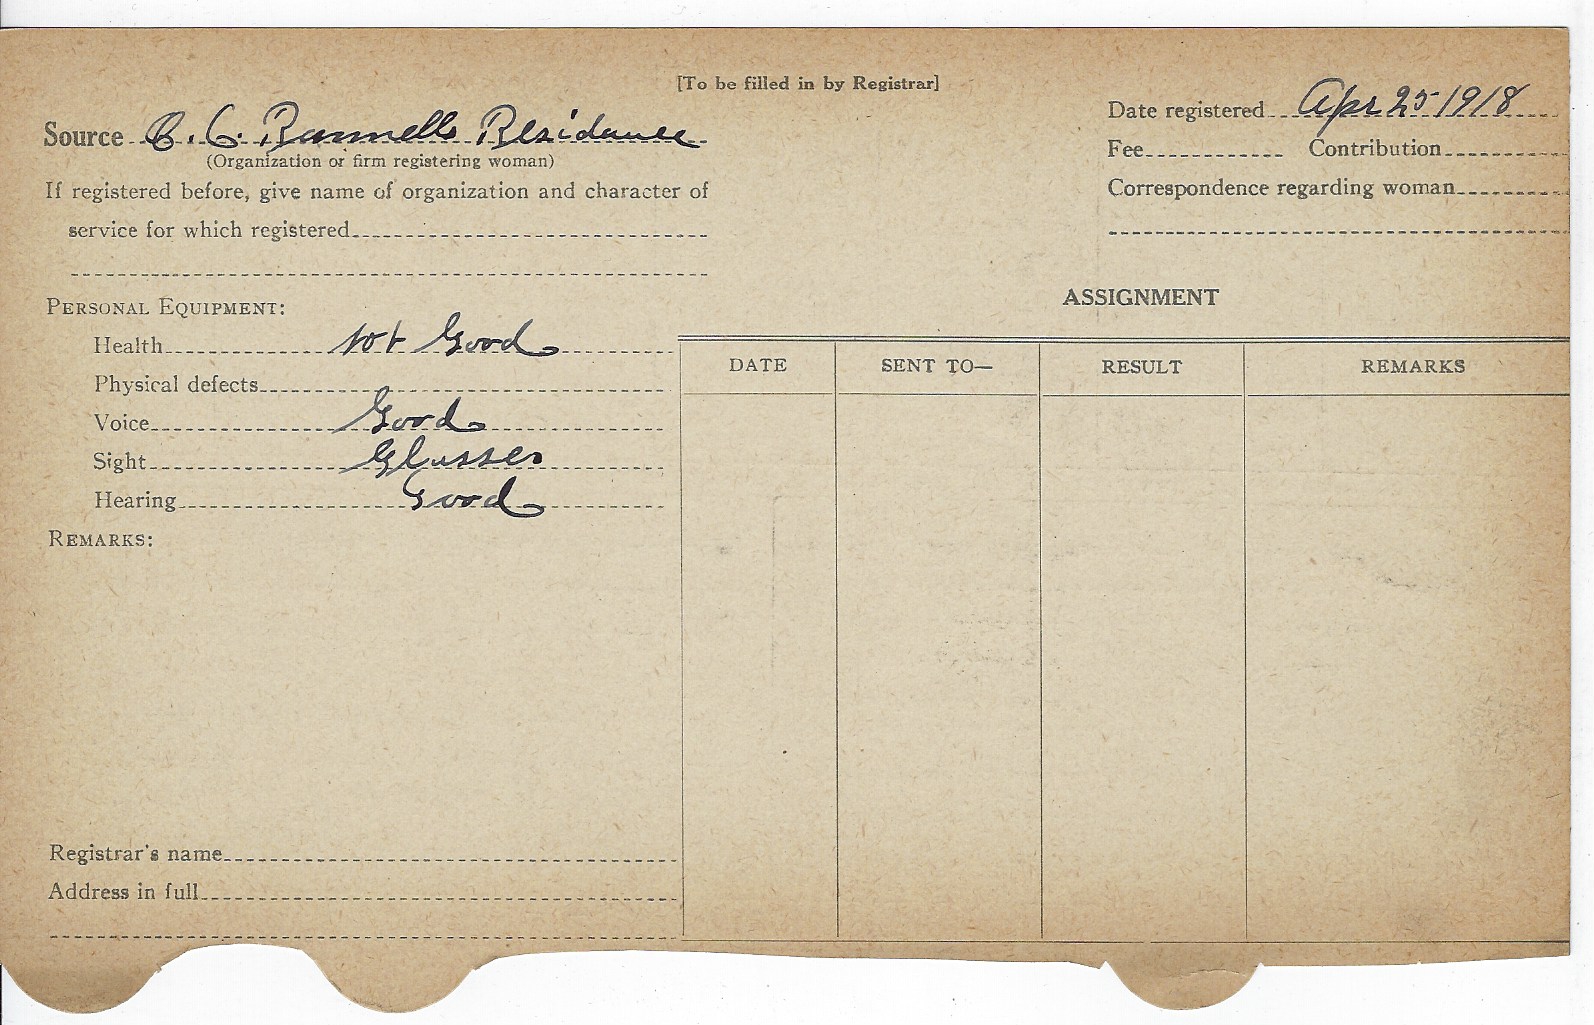 [To be filled in by Registrar]
Source B. C. Bunnells Residance
(Organization or firm registering woman)
If registered before, give name of organization and character of
service for which registered
Date registered Apr 25 1918
Fee Contribution
Correspondence regarding woman
PERSONAL EQUIPMENT:
Health not Good
Physical defects
Voice Good
Sight Glasses
Hearing Good
REMARKS:
Registrar's name
Address in full
ASSIGNMENT
DATE SENT TO— RESULT REMARKS